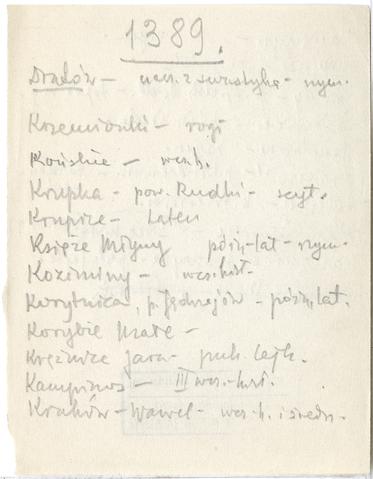 1389.
Drałów – nacz. z swastyką – rzym.
Krzemionki – rogi
Końskie – wcz. h.
Krupka – pow. Rudki – scyt.
Krupice – Laten
Księże Młyny późn.-lat – rzym.
Koziminy – wcz. hist.
Kurytnica, p. Jędrzejów – późn. lat.
Korybie Małe –
Krężnica Jara – puh. lejk.
Kampinos – III wcz. hist.
Kraków – Wawel – wcz. h. i średn.